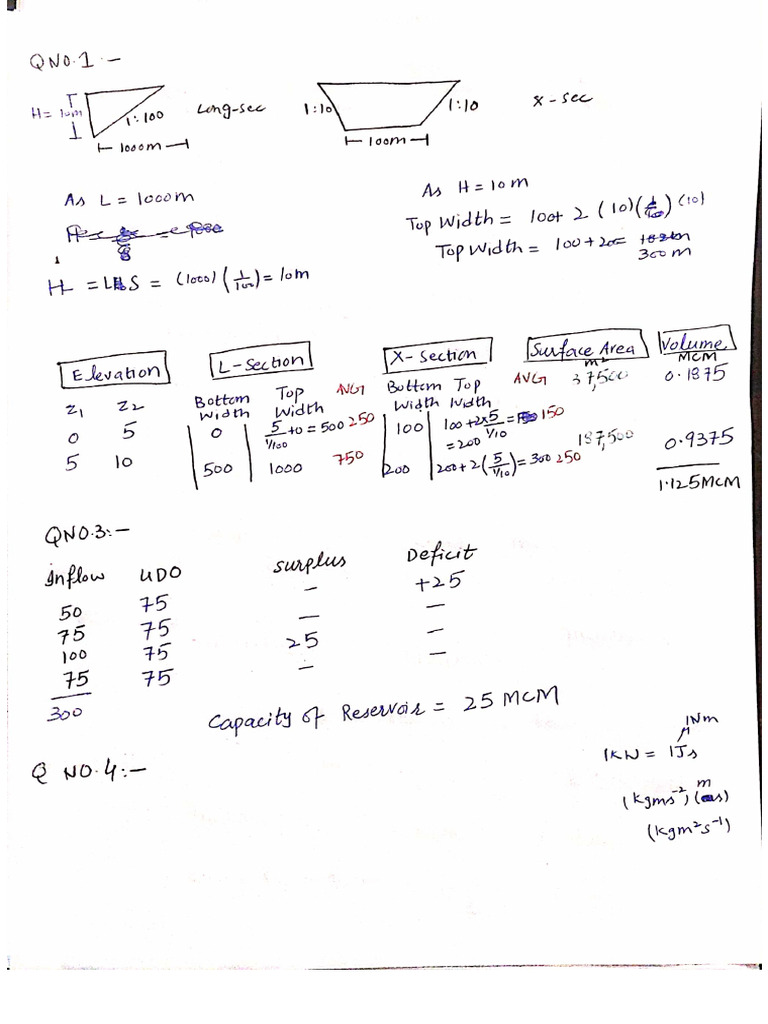 QNO.1:-
H= 10m 1:100 Long-sec 1:10 1:10 X-sec
1000m 100m
As L = 1000m As H = 10m
Top Width = 100+ 2 (10) (10)
Top Width = 100+200=
300m
H = L S = (1000) (1/100) = 10m
Elevation L-Section X-Section Surface Area Volume
m² MCM
Z1 Z2 Bottom Width Top Width AVG Bottom Width Top Width AVG 37,500 0.1875
0 5 0 5/(1/100) +0 = 500 250 100 100+2x5/(1/10) = 150
=200 187,500 0.9375
5 10 500 1000 750 200 200+2(5/(1/10)) = 300 250
1.125MCM
QNO.3:-
Inflow UDO Surplus Deficit
50 75 – +25
75 75 – –
100 75 25 –
75 75 – –
300
Capacity of Reservoir = 25 MCM
Q NO.4:-
1Nm
1KN = 1Js
(kgms⁻²) (s) m
(kgm²s⁻¹)